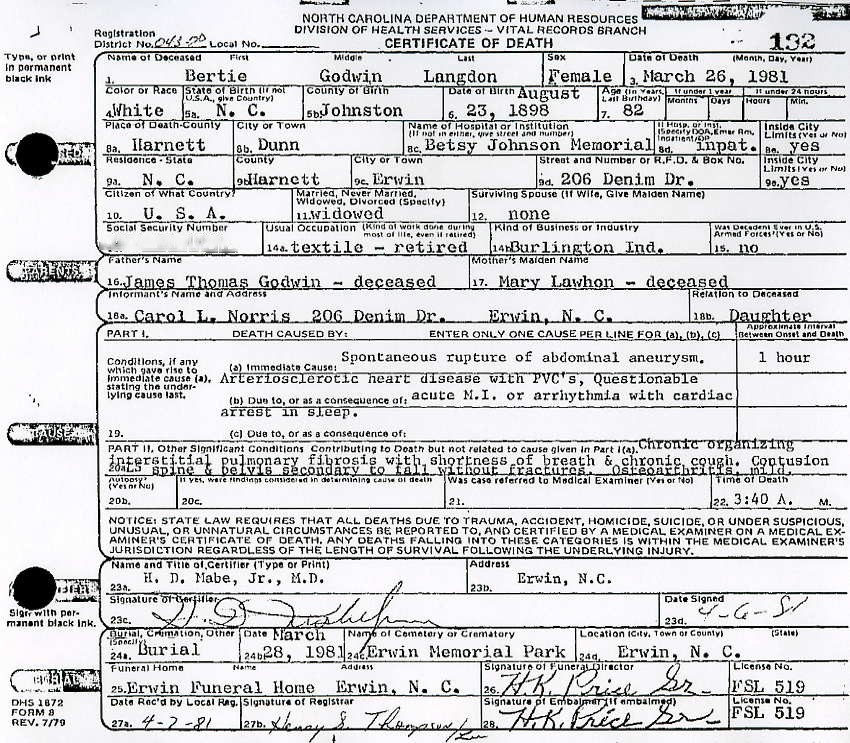 NORTH CAROLINA DEPARTMENT OF HUMAN RESOURCES
DIVISION OF HEALTH SERVICES - VITAL RECORDS BRANCH
CERTIFICATE OF DEATH
Registration
District No. 043-00 Local No.
192
Type, or print
in permanent
black ink
Name of Deceased First Middle Last Sex Date of Death (Month, Day, Year)
1. Bertie Godwin Langdon Female 3. March 26, 1981
Color or Race State of Birth (If not U.S.A., give Country) County of Birth Date of Birth August Age (In Years, Last Birthday) If under 1 year If under 24 hours
Months Days Hours Min.
4. White 5a. N. C. 5b. Johnston 6. 23, 1898 7. 82
Place of Death-County City or Town Name of Hospital or Institution (If not in either, give street and number) If Hosp. or Inst. (Specify DOA, Emer Rm, Inpatient/OP) Inside City Limits (Yes or No)
8a. Harnett 8b. Dunn 8c. Betsy Johnson Memorial 8d. inpat. 8e. yes
Residence - State County City or Town Street and Number or R.F.D. & Box No. Inside City Limits (Yes or No)
9a. N. C. 9b Harnett 9c. Erwin 9d. 206 Denim Dr. 9e. yes
Citizen of What Country? Married, Never Married, Widowed, Divorced (Specify) Surviving Spouse (If Wife, Give Maiden Name)
10. U. S. A. 11. widowed 12. none
Social Security Number Usual Occupation (Kind of work done during most of life, even if retired) Kind of Business or Industry Was Decedent Ever in U.S. Armed Forces? (Yes or No)
14a. textile - retired 14b Burlington Ind. 15. no
PARENTS
Father's Name Mother's Maiden Name
16. James Thomas Godwin - deceased 17. Mary Lawhon - deceased
Informant's Name and Address Relation to Deceased
18a. Carol L. Norris 206 Denim Dr. Erwin, N. C. 18b. Daughter
PART I. DEATH CAUSED BY: ENTER ONLY ONE CAUSE PER LINE FOR (a), (b), (c) Approximate Interval Between Onset and Death
Conditions, if any
which gave rise to
immediate cause (a),
stating the under-
lying cause last.
Spontaneous rupture of abdominal aneurysm. 1 hour
(a) Immediate Cause:
Arteriosclerotic heart disease with PVC's, Questionable
(b) Due to, or as a consequence of: acute M.I. or arrhythmia with cardiac
arrest in sleep.
CAUSE
19. (c) Due to, or as a consequence of:
PART II. Other Significant Conditions Contributing to Death but not related to cause given in Part I(a). Chronic organizing
interstitial pulmonary fibrosis with shortness of breath & chronic cough. Contusion
20a. L5 spine & pelvis secondary to fall without fractures. Osteoarthritis, mild.
Autopsy? (Yes or No) If yes, were findings considered in determining cause of death Was case referred to Medical Examiner (Yes or No) Time of Death
20b. 20c. 21. 22. 3:40 A. M.
NOTICE: STATE LAW REQUIRES THAT ALL DEATHS DUE TO TRAUMA, ACCIDENT, HOMICIDE, SUICIDE, OR UNDER SUSPICIOUS,
UNUSUAL, OR UNNATURAL CIRCUMSTANCES BE REPORTED TO, AND CERTIFIED BY A MEDICAL EXAMINER ON A MEDICAL EX-
AMINER'S CERTIFICATE OF DEATH. ANY DEATHS FALLING INTO THESE CATEGORIES IS WITHIN THE MEDICAL EXAMINER'S
JURISDICTION REGARDLESS OF THE LENGTH OF SURVIVAL FOLLOWING THE UNDERLYING INJURY.
Name and Title of Certifier (Type or Print) Address
23a. H. D. Mabe, Jr., M.D. 23b. Erwin, N.C.
Sign with per-
manent black ink.
Signature of Certifier Date Signed
23c. 23d. 4-6-81
Burial, Cremation, Other (Specify) Date March Name of Cemetery or Crematory Location (City, Town or County) (State)
24a. Burial 24b. 28, 1981 24c. Erwin Memorial Park 24d. Erwin, N. C.
BURIAL
Funeral Home Name Address Signature of Funeral Director License No.
25. Erwin Funeral Home Erwin, N. C. 26. H.K. Price Sr. FSL 519
Date Rec'd by Local Reg. Signature of Registrar Signature of Embalmer (If embalmed) License No.
27a. 4-7-81 27b. Henry S. Thompson 28. H.K. Price Sr. FSL 519
DHS 1872
FORM 8
REV. 7/79